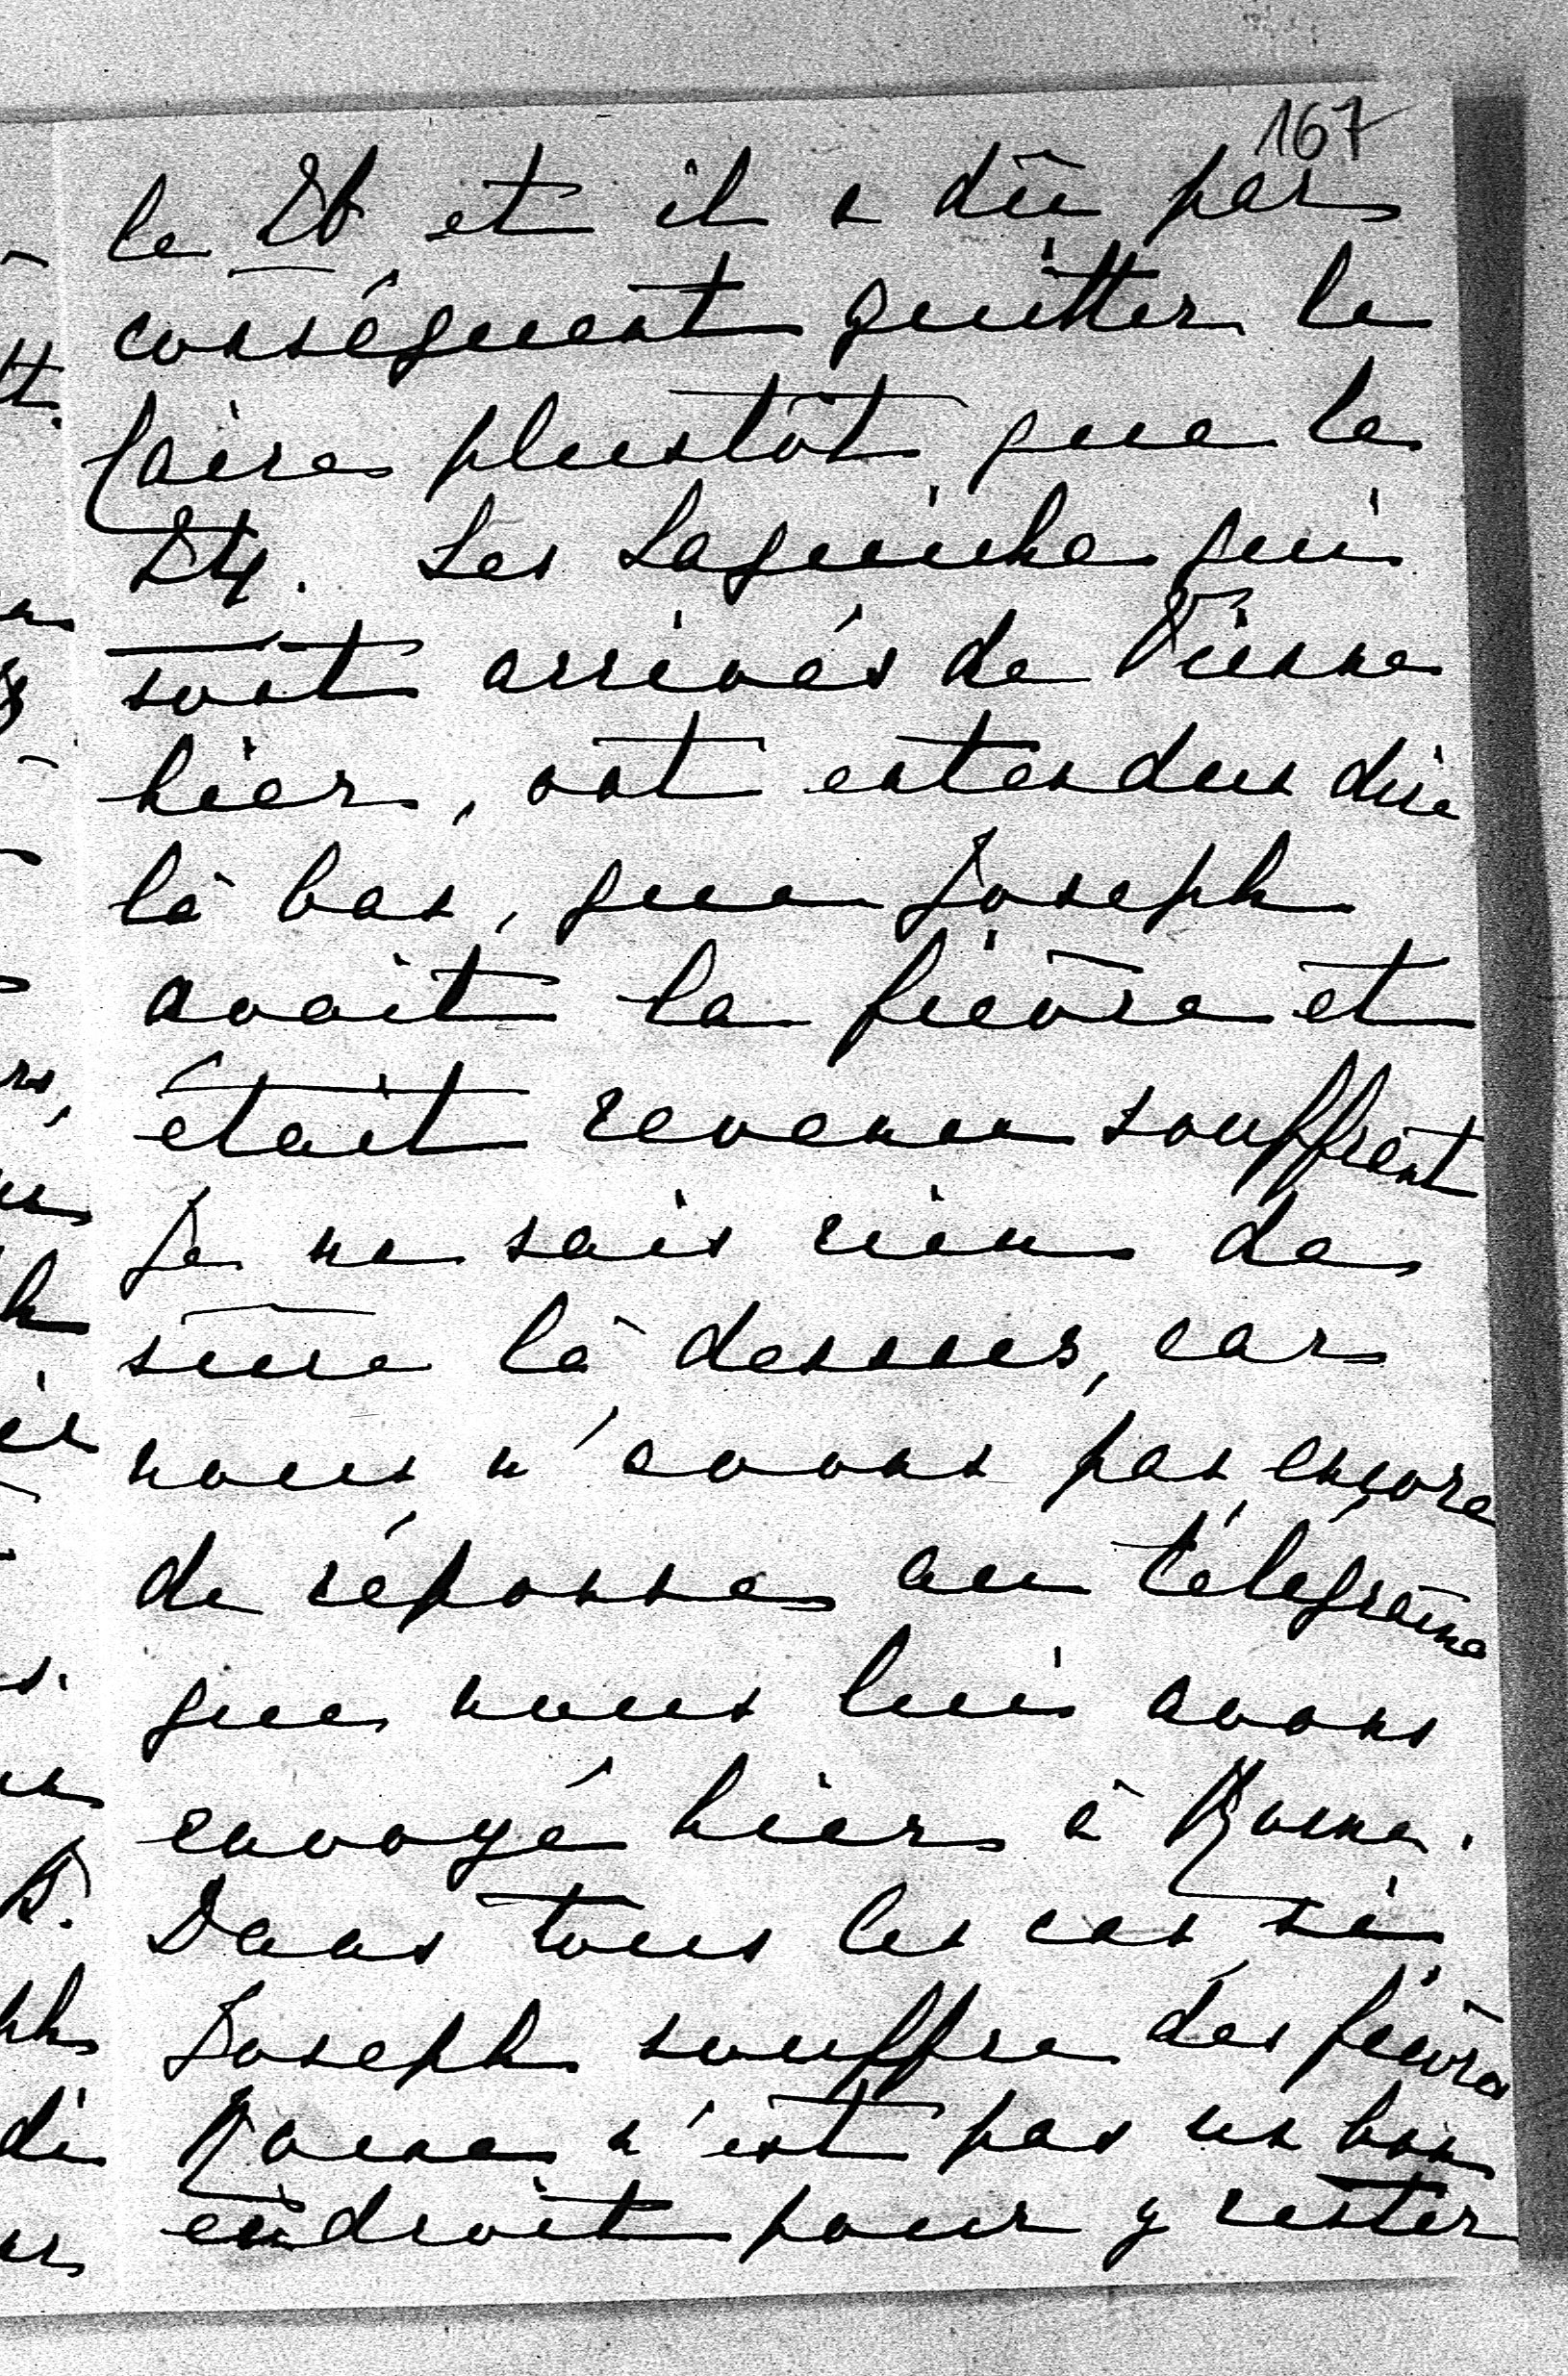 167
le 26 et il a dû par
conséquent quitter le
Caire plustôt que le
24. Les Laguiche qui
sont arrivés de Vienne
hier, ont entendus dire
là bas, que Joseph
avait la fièvre et
était revenu souffrant
Je ne sais rien de
sûre là dessus, car
nous n'avons pas encore
de réponse au télégrame
que nous lui avons
envoyé hier à Rome.
Dans tous les cas si
Joseph souffre des fièvres
Rome n'est pas un bon
endroit pour y rester